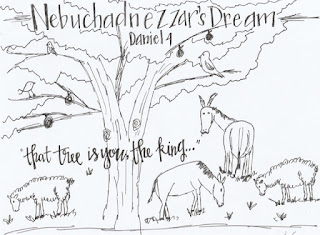 Nebuchadnezzar's Dream
Daniel 4
"that tree is you, the king..."